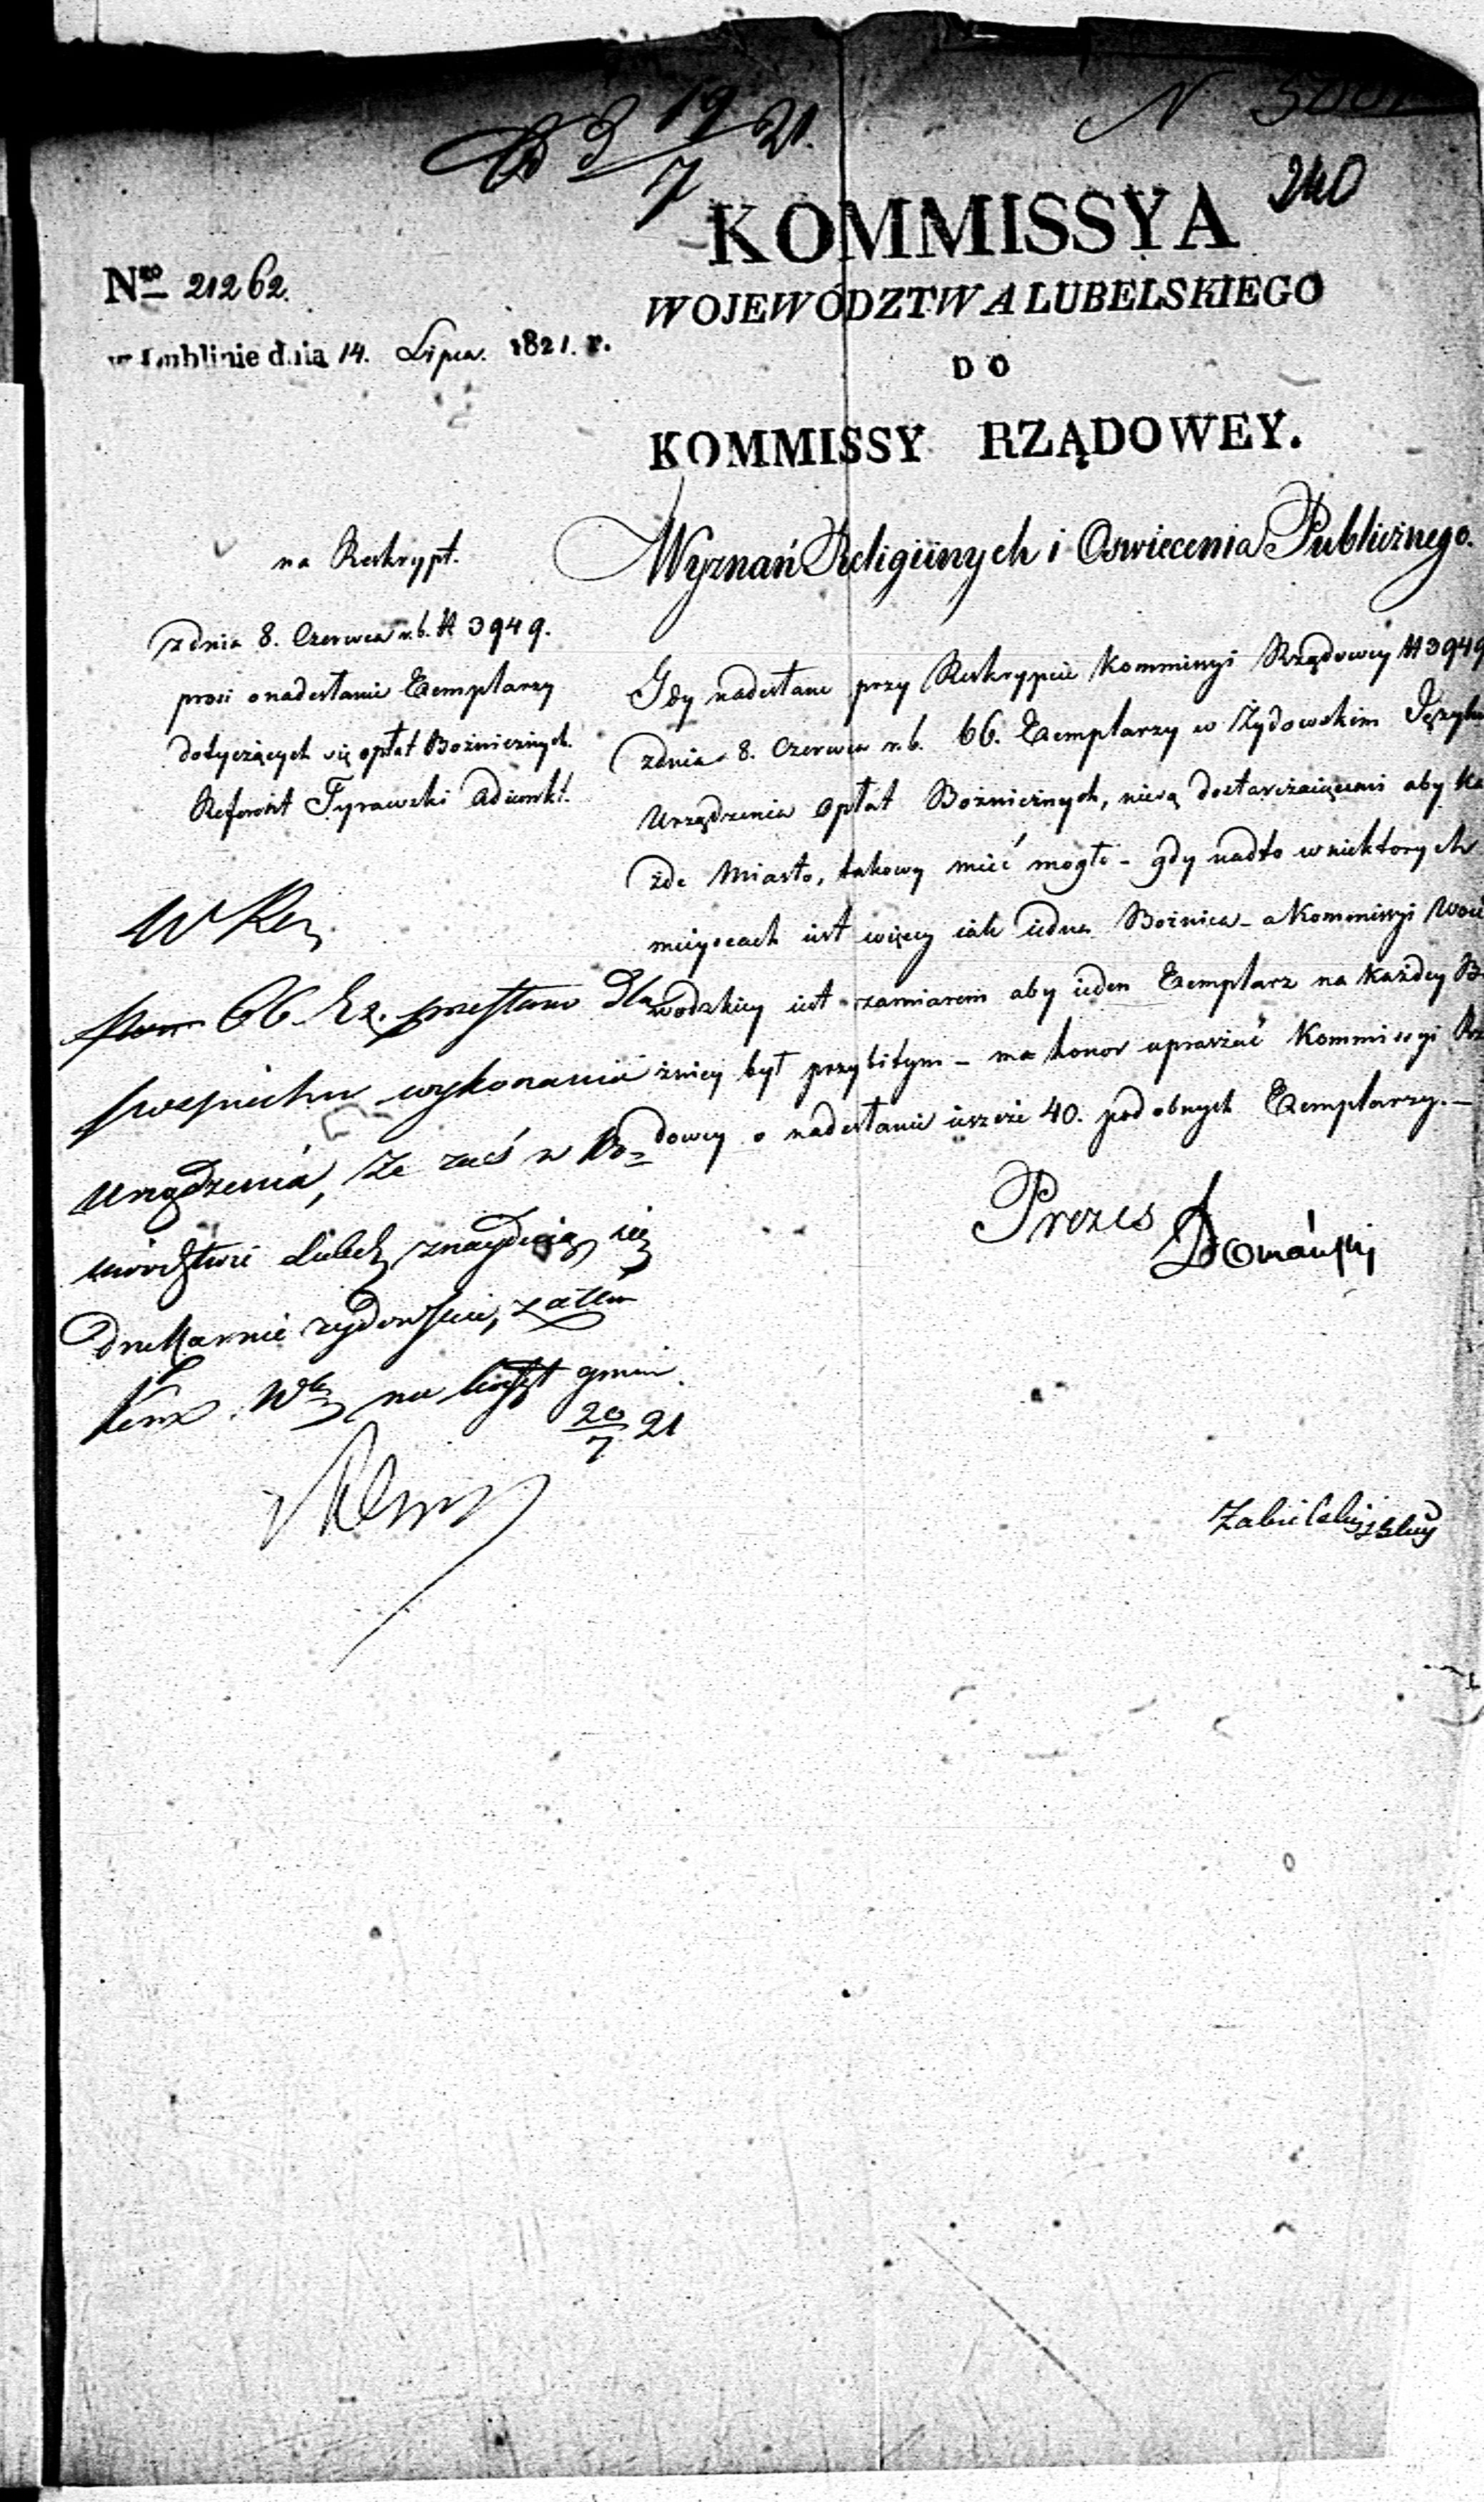 19/7 21.
N
240
KOMMISSYA
WOJEWÓDZTWA LUBELSKIEGO
DO
KOMMISSY RZĄDOWEY.
Nro 21262.
w Lublinie dnia 14. Lipca. 1821. r.
Wyznań Religiinych i Oswiecenia Publicznego.
na Reskrypt.
zdnia 8. Czerwca r.b. N 3949.
prosi o nadesłanie Exemplarzy
dotyczących się opłat Bożnicznych.
Referent Tyrawski Adiunkt.
Gdy nadesłane przy Reskrypcie Kommissyi Rządowey N 3949
zdnia 8. Czerwca r.b. 66. Exemplarzy w Żydowskim Języku
Urządzenia Opłat Bożnicznych, niesą dostarczaiącemi aby Ka
żde Miasto, takowy mieć mogło - gdy nadto wniektorych
mieyscach iest więcy iak iedna Bożnica - a Kommissyi Woie
wodzkiey iest zamiarem aby ieden Exemplarz na każdey Bo
żnicy był przybitym - ma honor upraszać Kommissyi Rzą
dowey o nadesłanie ieszcze 40. podobnych Exemplarzy. -
Prezes Domański
66 Ex. przesłano Dla
pospiechu wykonania
Urządzenia, Ze zaś w Wo=
iewodztwie Lubel znayduią się
Drukarnie żydowskie, zatem
na gmin.
20/7 21